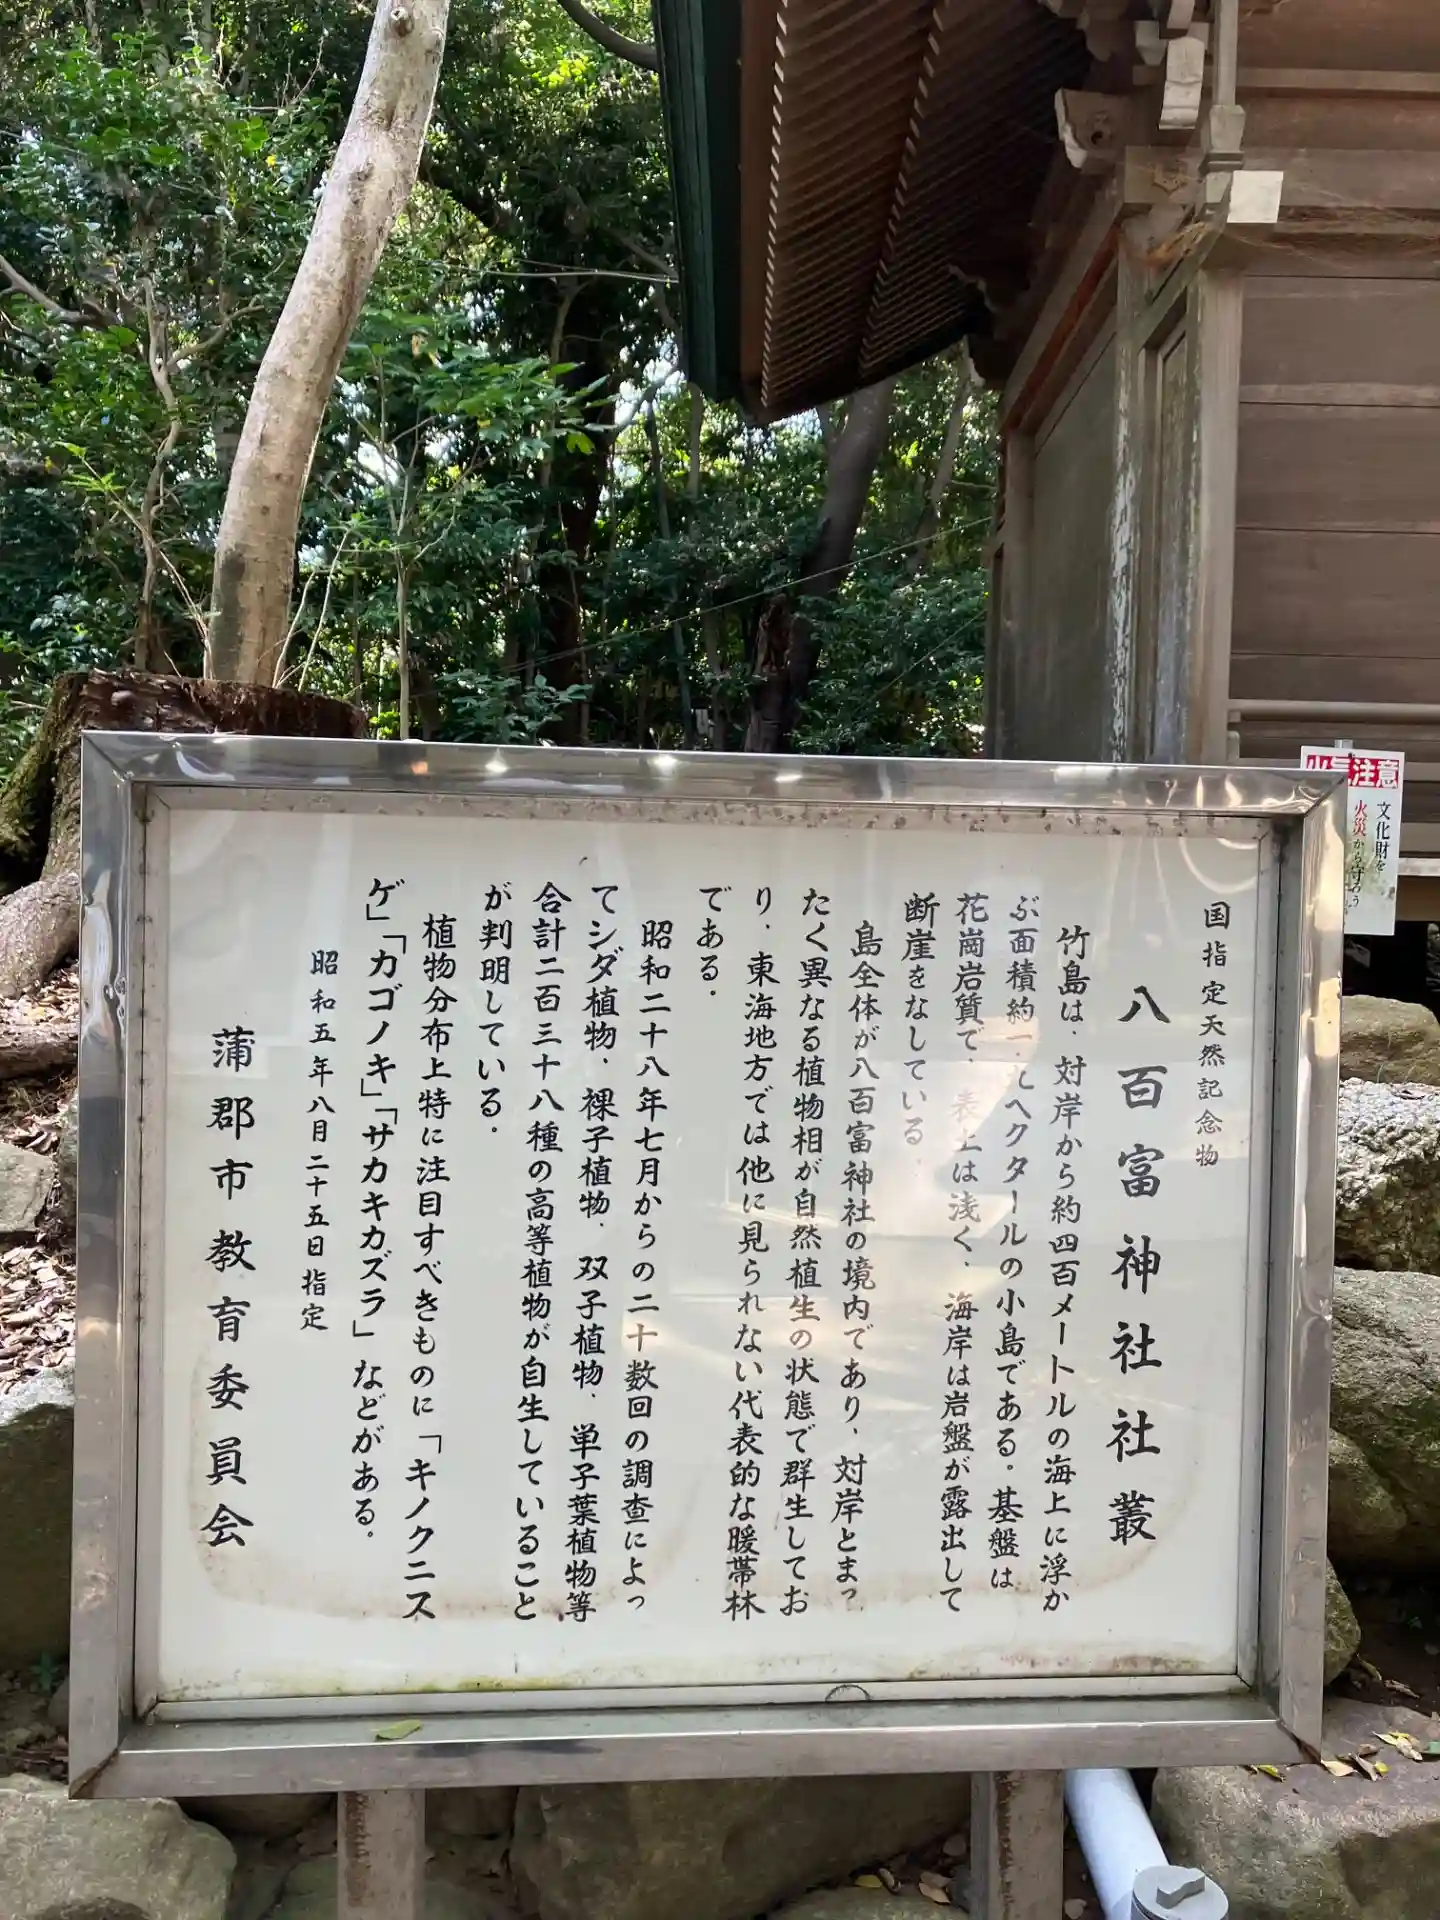 国指定天然記念物
八百富神社社叢
竹島は、対岸から約四百メートルの海上に浮か
ぶ面積約一.九ヘクタールの小島である。基盤は
花崗岩質で、表土は浅く、海岸は岩盤が露出して
断崖をなしている。
島全体が八百富神社の境内であり、対岸とまっ
たく異なる植物相が自然植生の状態で群生してお
り、東海地方では他に見られない代表的な暖帯林
である。
昭和二十八年七月からの二十数回の調査によっ
てシダ植物、裸子植物、双子植物、単子葉植物等
合計二百三十八種の高等植物が自生していること
が判明している。
植物分布上特に注目すべきものに「キノクニス
ゲ」「カゴノキ」「サカキカズラ」などがある。
昭和五年八月二十五日指定
蒲郡市教育委員会
火気注意
文化財を
火災から守ろう